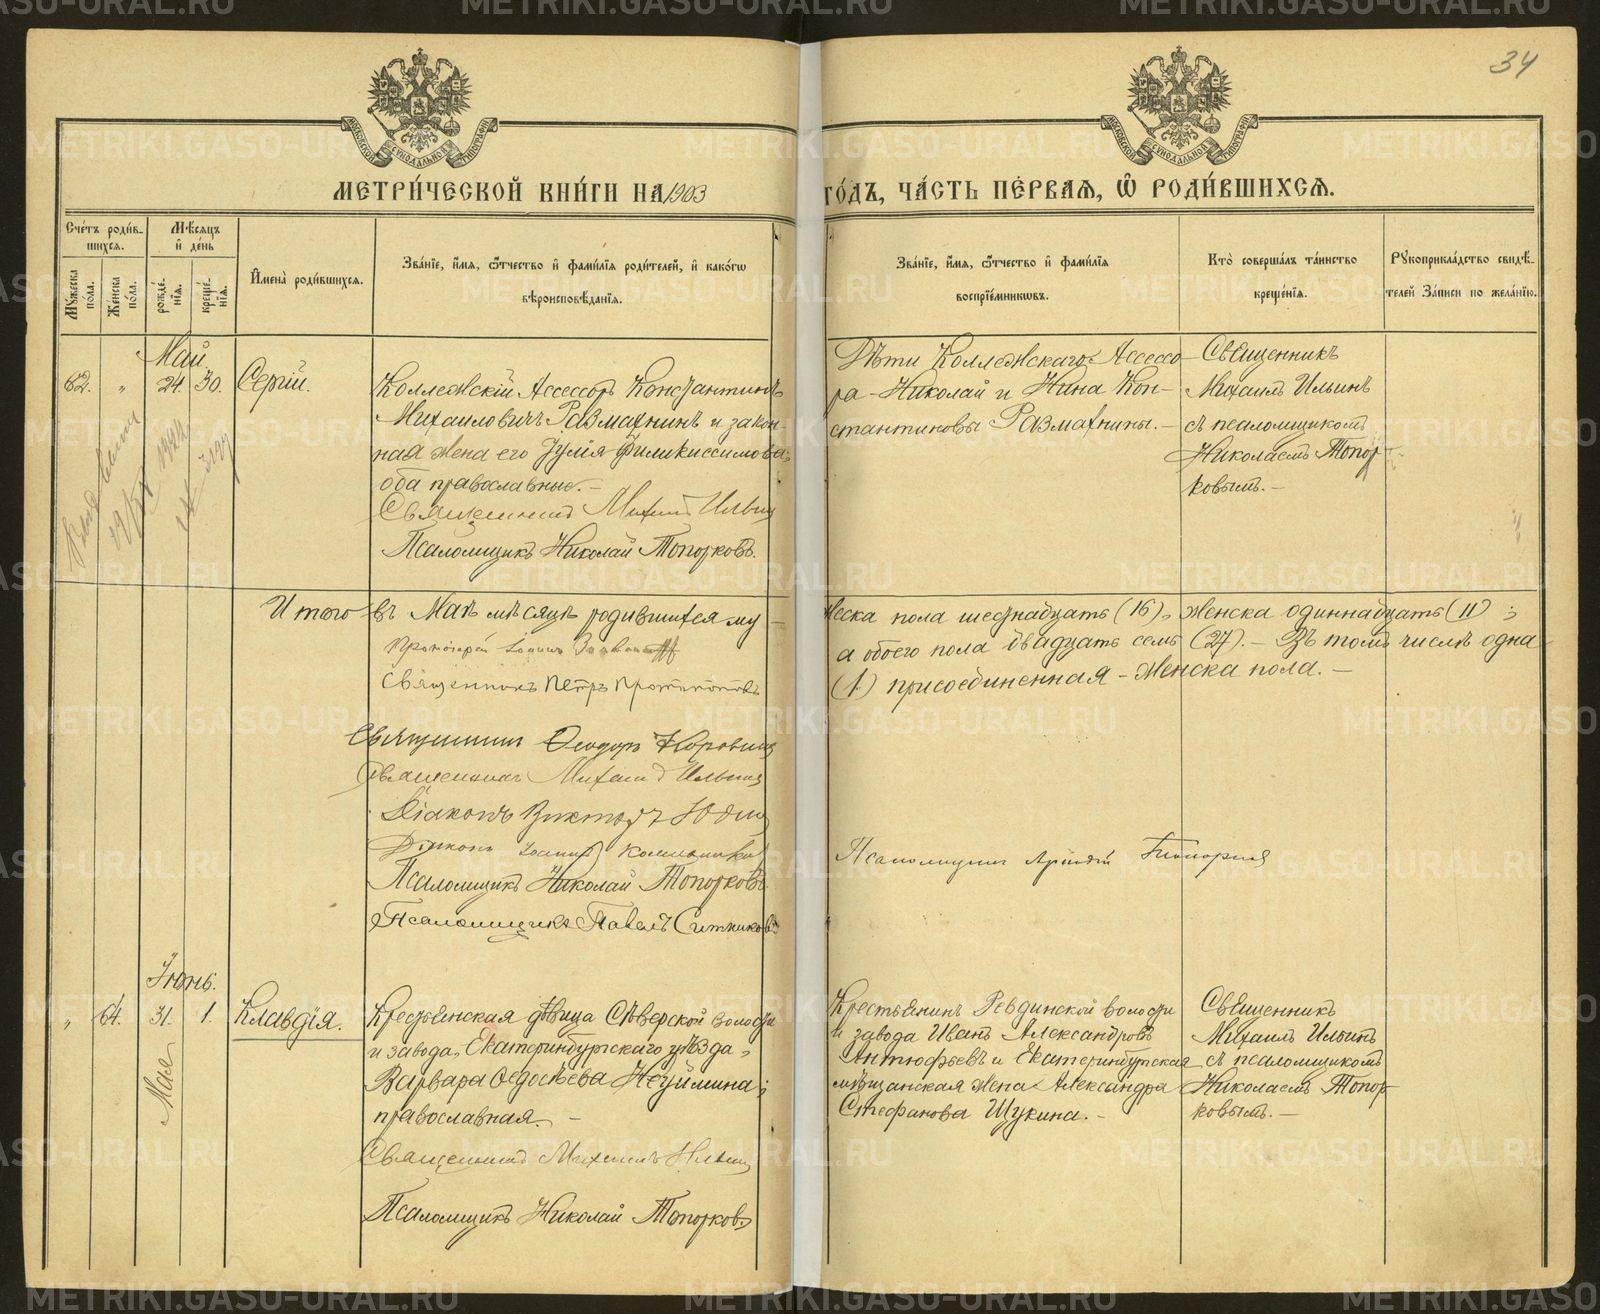 34
МОСКОВСКОЙ СѴНОДАЛЬНОЙ ТИПОГРАФІИ
МОСКОВСКОЙ СѴНОДАЛЬНОЙ ТИПОГРАФІИ
МЕТРИ́ЧЕСКОЙ КНИ́ГИ НА 1903
ГО́ДЪ, ЧА́СТЬ ПЕ́РВАѦ, Ѡ҆ РОДИ́ВШИХСѦ.
Сче́тъ роди́в-
шихсѧ.
Мꙋжеска пола.
Женска пола.
Мѣсѧцъ
и҆ де́нь
рожде́-
нїѧ.
креще́-
нїѧ.
И҆мена̀ роди́вшихсѧ.
Зва́нїе, и҆́мѧ, ѻ҆́тчество и҆ фами́лїѧ роди́телей, и҆ како́гѡ
вѣроисповѣ́данїѧ.
Зва́нїе, и҆́мѧ, ѻ҆́тчество и҆ фами́лїѧ
воспрїе́мникѡвъ.
Кто̀ соверша́лъ та́инство
креще́нїѧ.
Рꙋкоприкла́дство свидѣ́-
телей за́писи по жела́нїю.
Май.
62. " 24. 30. Сергій.
Коллежскій Ассессоръ Константинъ
Михаиловичъ Размахнинъ и закон-
ная жена его Іулія Филикиссимова,
оба православные. –
Священникъ Михаилъ Ильинъ
Псаломщикъ Николай Топорковъ.
Дѣти Коллежскаго Ассессо-
ра – Николай и Нина Кон-
стантиновы Размахнины. –
Священникъ
Михаилъ Ильинъ
съ псаломщикомъ
Николаемъ Топор-
ковымъ. –
Итого въ Маѣ мѣсяцѣ родившихся му-
жеска пола шестнадцать (16), женска одиннадцать (11);
а обоего пола двадцать семь (27). – Въ томъ числѣ одна
(1.) присоединенная – женска пола. –
Протоіерей Іоаннъ
Священникъ Петръ Протопоповъ
Священникъ Ѳеодоръ Коровинъ
Священникъ Михаилъ Ильинъ
Діаконъ Викторъ Юдинъ
Діаконъ Іоаннъ
Псаломщикъ Николай Топорковъ.
Псаломщикъ Павелъ Ситниковъ
Псаломщикъ
Іюнь.
" 64. 31. 1. Клавдія.
Мая
Крестьянская дѣвица Сѣверской волости
и завода, Екатеринбургскаго уѣзда,
Варвара Ѳедосѣева Неуймина;
православная. –
Священникъ Михаилъ Ильинъ
Псаломщикъ Николай Топорковъ
Крестьянинъ Ревдинской волости
и завода Иванъ Александровъ
Антюфьевъ и Екатеринбургская
мѣщанская жена Александра
Стефанова Щукина. –
Священникъ
Михаилъ Ильинъ
съ псаломщикомъ
Николаемъ Топор-
ковымъ. –
METRIKI.GASO-URAL.RU